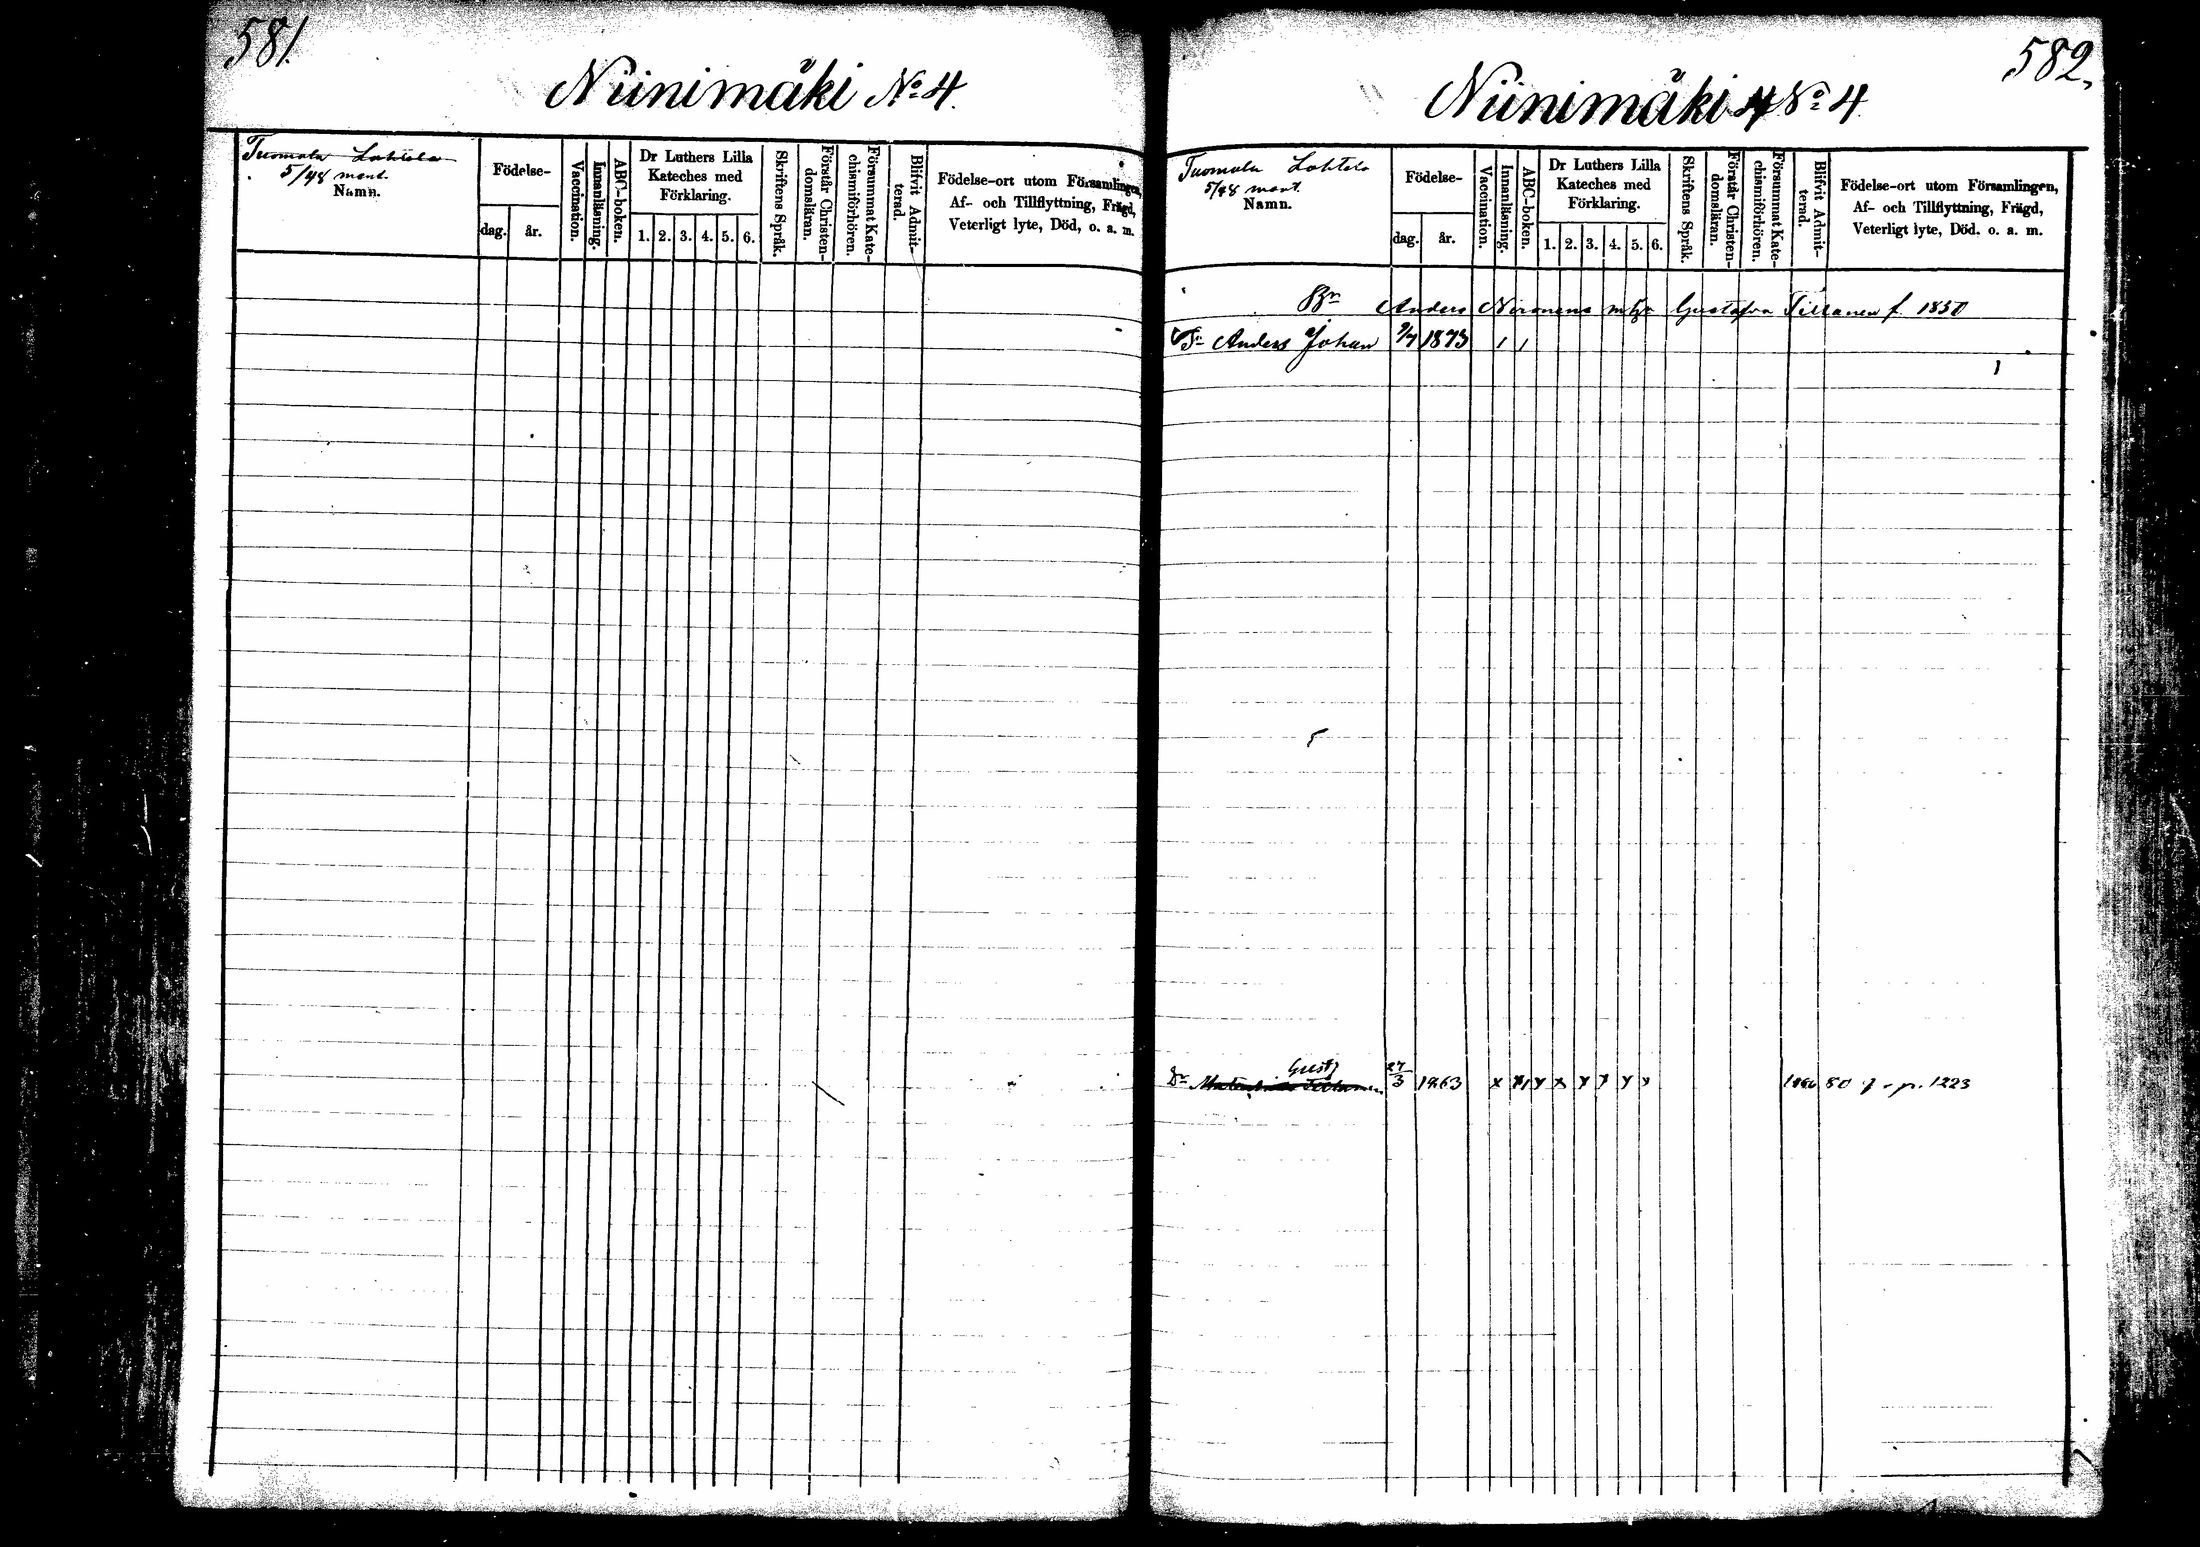 581.
Niinimäki No 4.
Tuomala Lahtela
5/48 mant.
Namn.
Födelse-
dag.
år.
Vaccination.
Innanläsning.
ABC-boken.
Dr Luthers Lilla
Kateches med
Förklaring.
1. 2. 3. 4. 5. 6.
Skriftens Språk.
Förstår Christen-
domsläran.
Försummat Kate-
chismiförhören.
Blifvit Admit-
terad.
Födelse-ort utom Församlingen,
Af- och Tillflyttning, Frägd,
Veterligt lyte, Död, o. a. m.
582.
Niinimäki No 4
Tuomala Lahtela
5/48 mant.
Namn.
Födelse-
dag.
år.
Vaccination.
Innanläsning.
ABC-boken.
Dr Luthers Lilla
Kateches med
Förklaring.
1. 2. 3. 4. 5. 6.
Skriftens Språk.
Förstår Christen-
domsläran.
Försummat Kate-
chismiförhören.
Blifvit Admit-
terad.
Födelse-ort utom Församlingen,
Af- och Tillflyttning, Frägd,
Veterligt lyte, Död, o. a. m.
Anders Gustafva f. 1850
Anders Johan 1873
Gust
Dr 27/3 1863 x x x x x x x 80 p. 1223